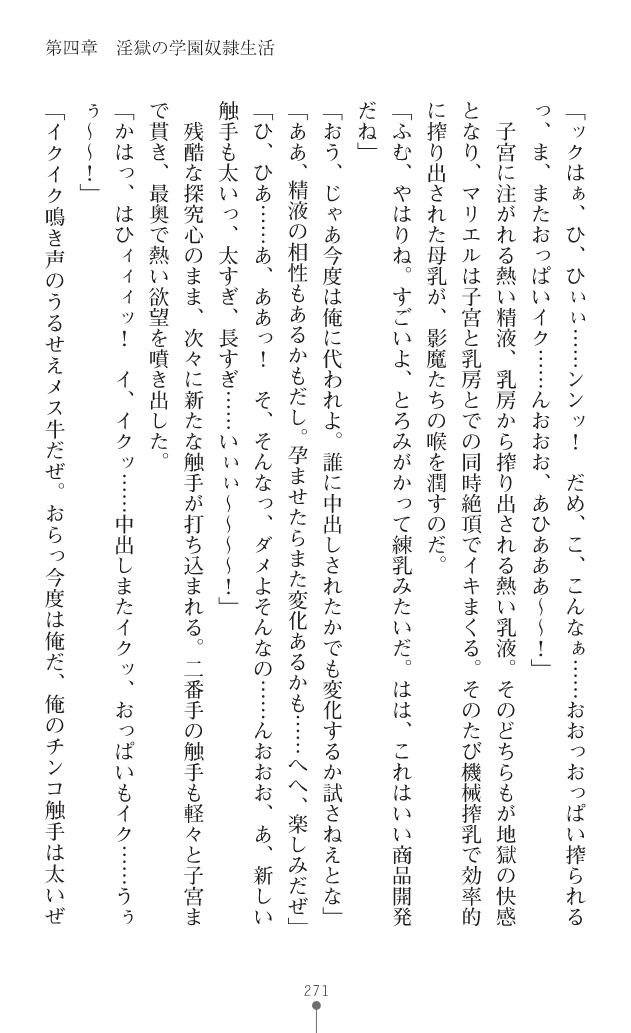 第四章　淫獄の学園奴隷生活
「ックはぁ、ひ、ひぃぃ……ンンッ！　だめ、こ、こんなぁ……おおっおっぱい搾られる
っ、ま、またおっぱいイク……んおおお、あひあああ～～！」
　子宮に注がれる熱い精液、乳房から搾り出される熱い乳液。そのどちらもが地獄の快感
となり、マリエルは子宮と乳房とでの同時絶頂でイキまくる。そのたび機械搾乳で効率的
に搾り出された母乳が、影魔たちの喉を潤すのだ。
「ふむ、やはりね。すごいよ、とろみがかって練乳みたいだ。はは、これはいい商品開発
だね」
「おう、じゃあ今度は俺に代われよ。誰に中出しされたかでも変化するか試さねえとな」
「ああ、精液の相性もあるかもだし。孕ませたらまた変化あるかも……へへ、楽しみだぜ」
「ひ、ひあ……あ、ああっ！　そ、そんなっ、ダメよそんなの……んおおお、あ、新しい
触手も太いっ、太すぎ、長すぎ……いぃぃ～～～～！」
　残酷な探究心のまま、次々に新たな触手が打ち込まれる。二番手の触手も軽々と子宮ま
で貫き、最奥で熱い欲望を噴き出した。
「かはっ、はひィィィッ！　イ、イクッ……中出しまたイクッ、おっぱいもイク……うぅ
ぅ～～！」
「イクイク鳴き声のうるせえメス牛だぜ。おらっ今度は俺だ、俺のチンコ触手は太いぜ
271